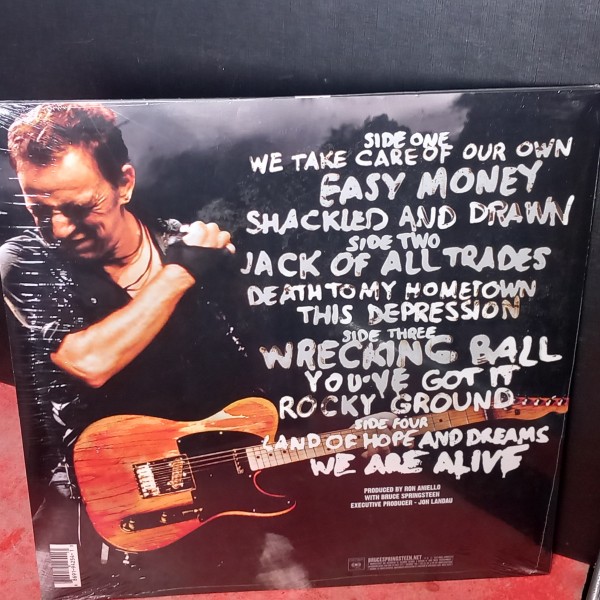 SIDE ONE
WE TAKE CARE OF OUR OWN
EASY MONEY
SHACKLED AND DRAWN
SIDE TWO
JACK OF ALL TRADES
DEATH TO MY HOMETOWN
THIS DEPRESSION
SIDE THREE
WRECKING BALL
YOU'VE GOT IT
ROCKY GROUND
SIDE FOUR
LAND OF HOPE AND DREAMS
WE ARE ALIVE
PRODUCED BY RON ANIELLO
WITH BRUCE SPRINGSTEEN
EXECUTIVE PRODUCER - JON LANDAU
BRUCESPRINGSTEEN.NET